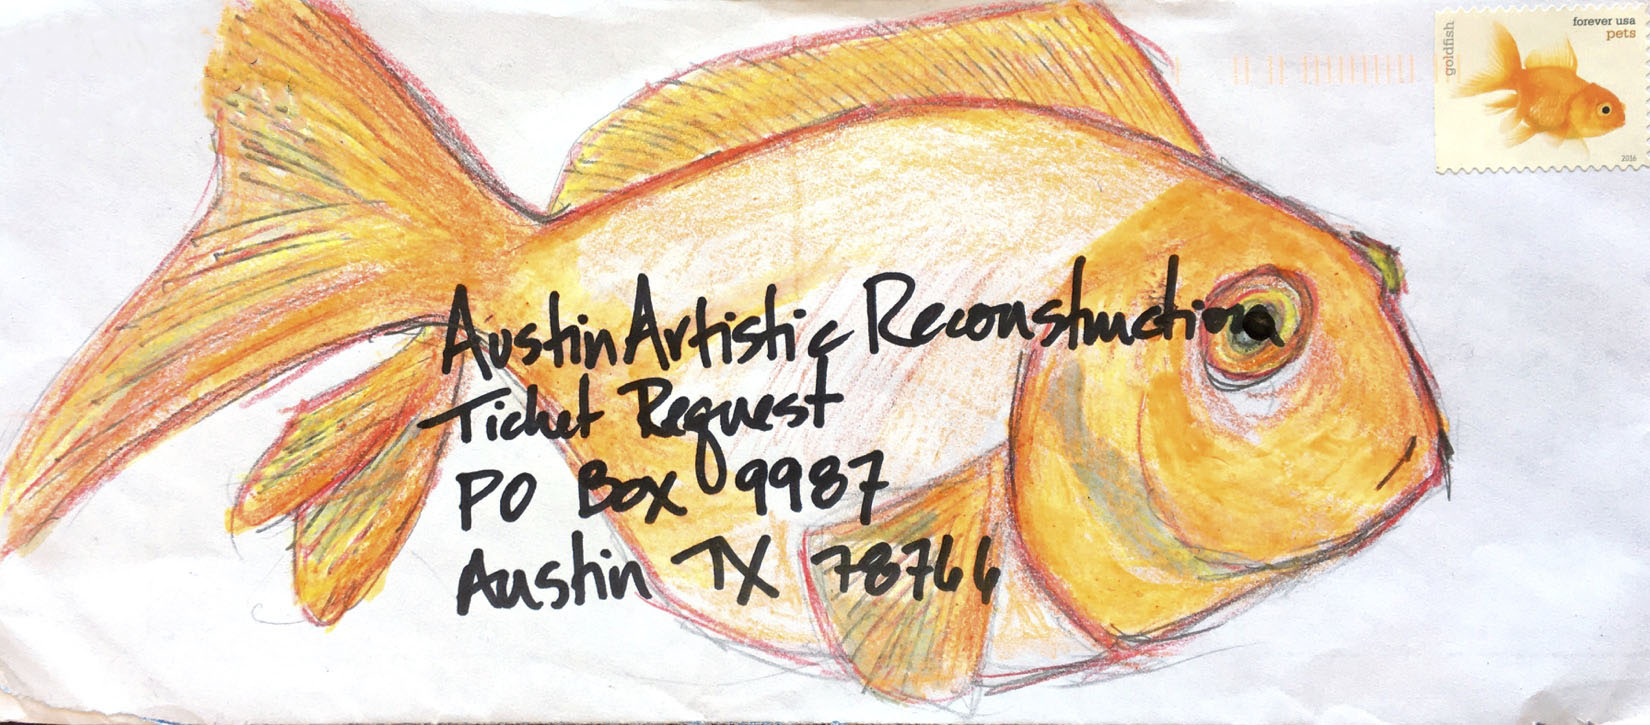 forever usa
pets
goldfish
2016
Austin Artistic Reconstruction
Ticket Request
PO Box 9987
Austin TX 78766